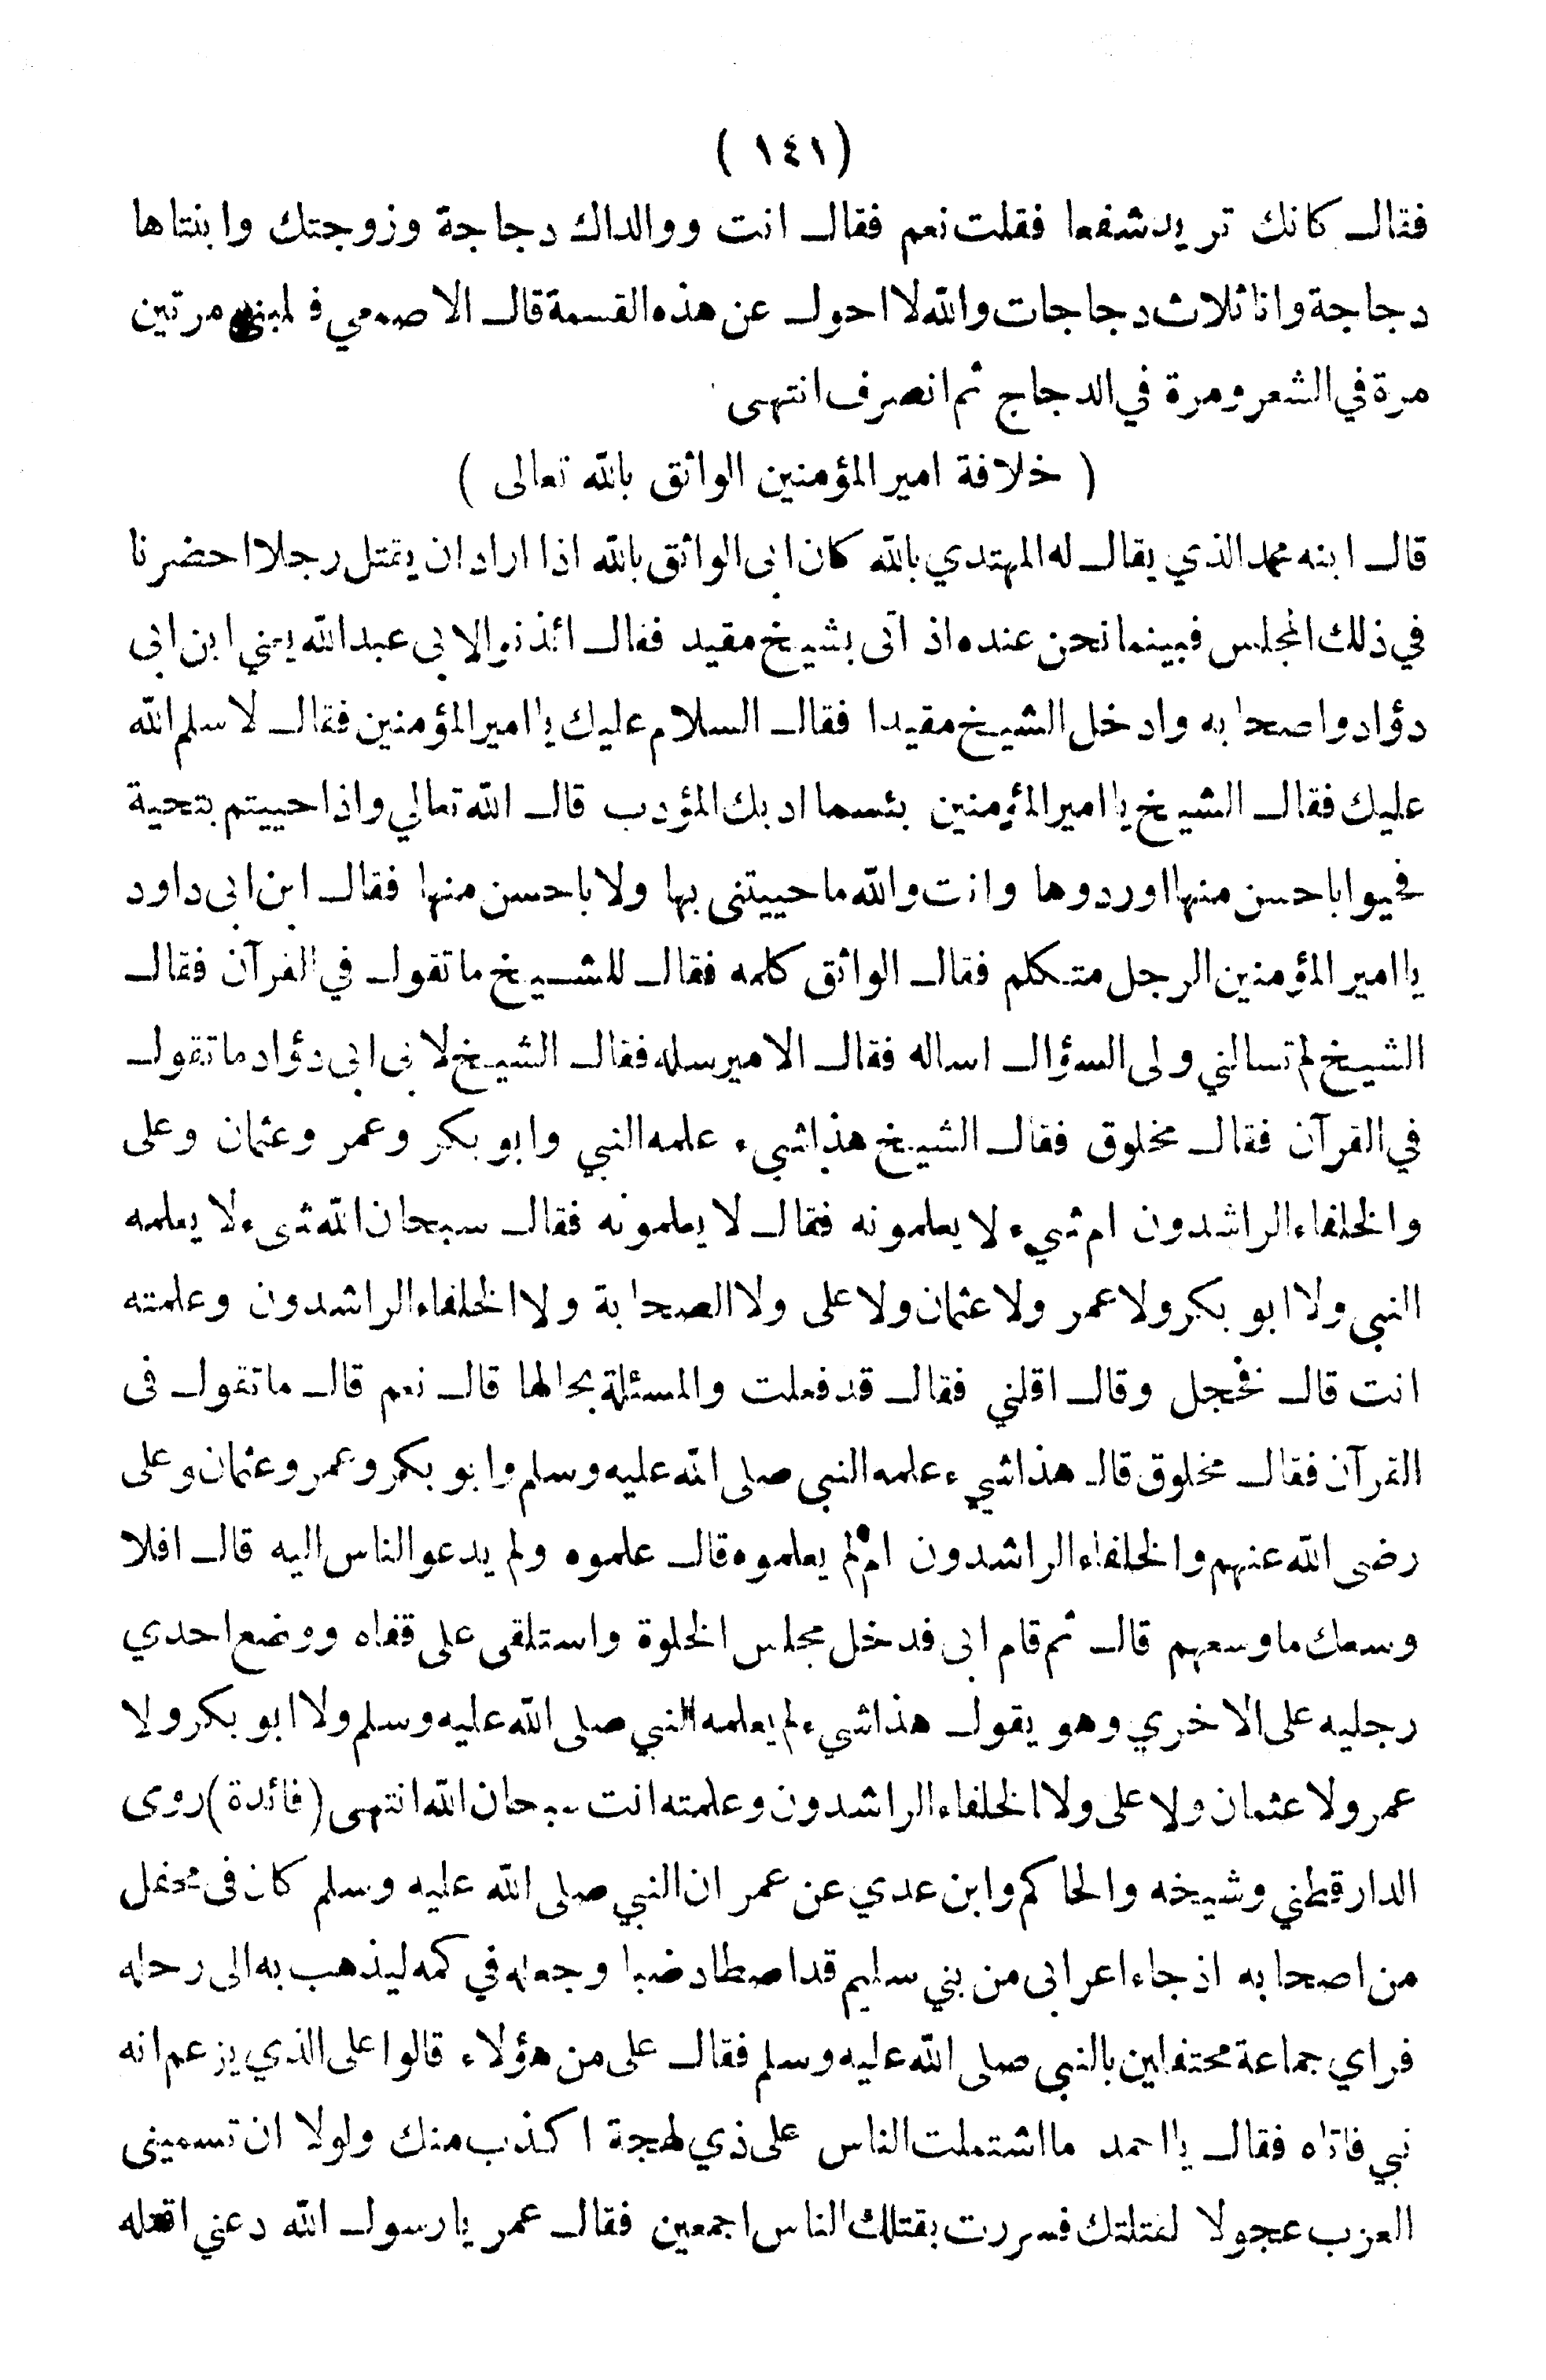 (١٤١)
فقال كانك تريد شفعا فقلت نعم فقال انت ووالداك دجاجة وزوجتك وابنتاها
دجاجة وانا ثلاث دجاجات والله لا احول عن هذه القسمة قال الاصمعي فغلبني مرتين
مرة في الشعر ومرة في الدجاج ثم انصرف انتهى
( خلافة امير المؤمنين الواثق بالله تعالى )
قال ابنه محمد الذي يقال له المهتدي بالله كان ابى الواثق بالله اذا اراد ان يقتل رجلا احضرنا
في ذلك المجلس فبينما نحن عنده اذ اتى بشيخ مقيد فقال ائذنوا لابي عبد الله يعني ابن ابى
دؤاد واصحابه وادخل الشيخ مقيدا فقال السلام عليك يا امير المؤمنين فقال لا سلم الله
عليك فقال الشيخ يا امير المؤمنين بئسما ادبك المؤدب قال الله تعالي واذا حييتم بتحية
فحيوا باحسن منها اوردوها وانت والله ما حييتنى بها ولا باحسن منها فقال ابن ابى داود
يا امير المؤمنين الرجل متكلم فقال الواثق كلمه فقال للشيخ ما تقول في القرآن فقال
الشيخ لم تسالني ولى السؤال اساله فقال الامير سله فقال الشيخ لابى ابى دؤاد ما تقول
في القرآن فقال مخلوق فقال الشيخ هذا شيء علمه النبي وابو بكر وعمر وعثمان وعلى
والخلفاء الراشدون ام شيء لا يعلمونه فقال لا يعلمونه فقال سبحان الله شىء لا يعلمه
النبى ولا ابو بكر ولا عمر ولا عثمان ولا على ولا الصحابة ولا الخلفاء الراشدون وعلمته
انت قال فخجل وقال اقلني فقال قد فعلت والمسئلة بحالها قال نعم قال ما تقول فى
القرآن فقال مخلوق قال هذا شيء علمه النبى صلى الله عليه وسلم وابو بكر وعمر وعثمان وعلى
رضى الله عنهم والخلفاء الراشدون ام لم يعلموه قال علموه ولم يدعو الناس اليه قال افلا
وسعك ما وسعهم قال ثم قام ابى فدخل مجلس الخلوة واستلقى على قفاه ووضع احدي
رجليه على الاخري وهو يقول هذا شيء لم يعلمه النبي صلى الله عليه وسلم ولا ابو بكر ولا
عمر ولا عثمان ولا على ولا الخلفاء الراشدون وعلمته انت سبحان الله انتهى (فائدة) روى
الدارقطني وشيخه والحاكم وابن عدي عن عمر ان النبي صلى الله عليه وسلم كان فى محفل
من اصحابه اذ جاء اعرابى من بني سليم قد اصطاد ضبا وجعله في كمه ليذهب به الى رحله
فراي جماعة محتفلين بالنبى صلى الله عليه وسلم فقال على من هؤلاء قالوا على الذي يزعم انه
نبي فاتاه فقال يا احمد ما اشتملت الناس على ذي لهجة اكذب منك ولولا ان تسمينى
العرب عجولا لقتلتك فسررت بقتلك الناس اجمعين فقال عمر يا رسول الله دعني اقتله